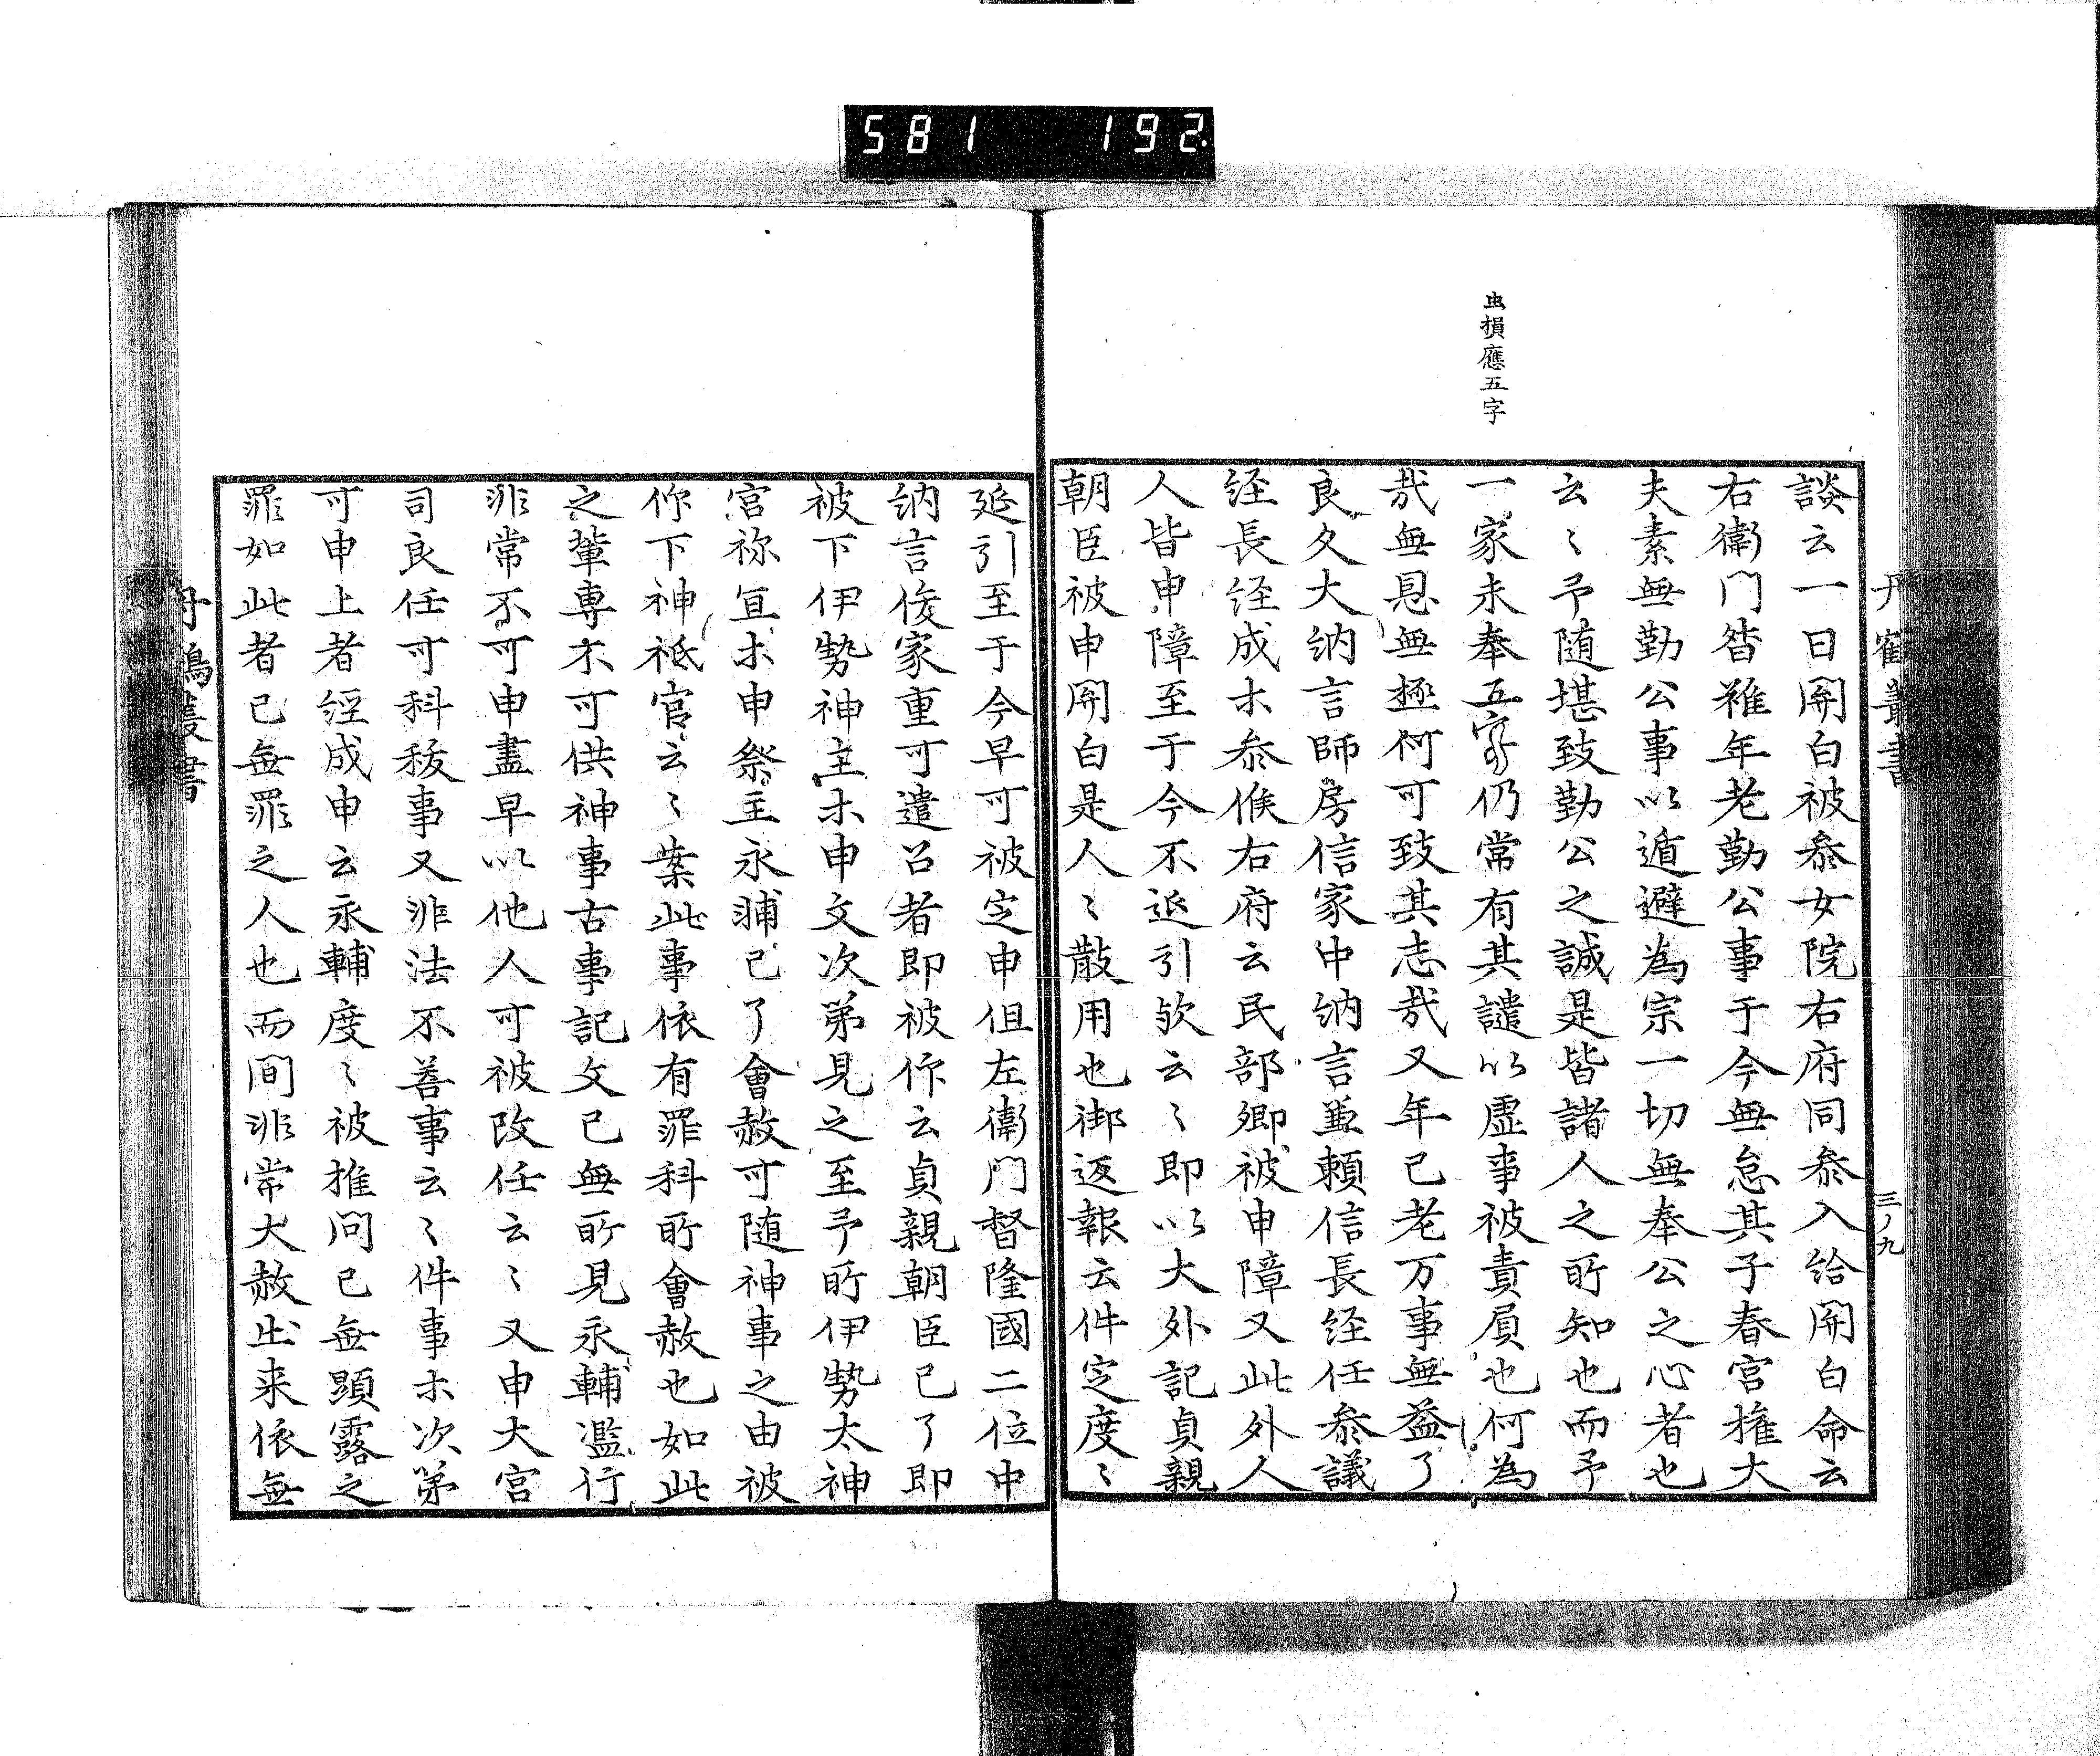 581 192.
丹鶴叢書
三ノ九
虫損應五字
談云一日関白被参女院右府同参入給関白命云
右衛門督雖年老勤公事于今無怠其子春宮権大
夫素無勤公事以遁避為宗一切無奉公之心者也
云〻予随堪致勤公之誠是皆諸人之所知也而予
一家未奉五字仍常有其譴以虚事被責屓也何為
哉無恩無極何可致其志哉又年已老万事無益了
良久大納言師房信家中納言兼頼信長経任参議
経長経成木参候右府云民部卿被申障又此外人
人皆申障至于今不延引欤云〻即以大外記貞親
朝臣被申関白是人〻散用也御返報云件定度〻
延引至于今早可被定申但左衛門督隆國二位中
納言俊家重可遣召者即被仰云貞親朝臣已了即
被下伊勢神主木申文次第見之至予所伊勢太神
宮祢冝木申祭主永輔已了會赦可随神事之由被
仰下神祇官云〻案此事依有罪科所會赦也如此
之輩専不可供神事古事記文已無所見永輔濫行
非常不可申盡早以他人可被改任云〻又申大宮
司良任可科秡事又非法不善事云〻件事木次第
可申上者経成申云永輔度〻被推問已無顕露之
罪如此者已無罪之人也而間非常大赦出来依無
丹鶴叢書